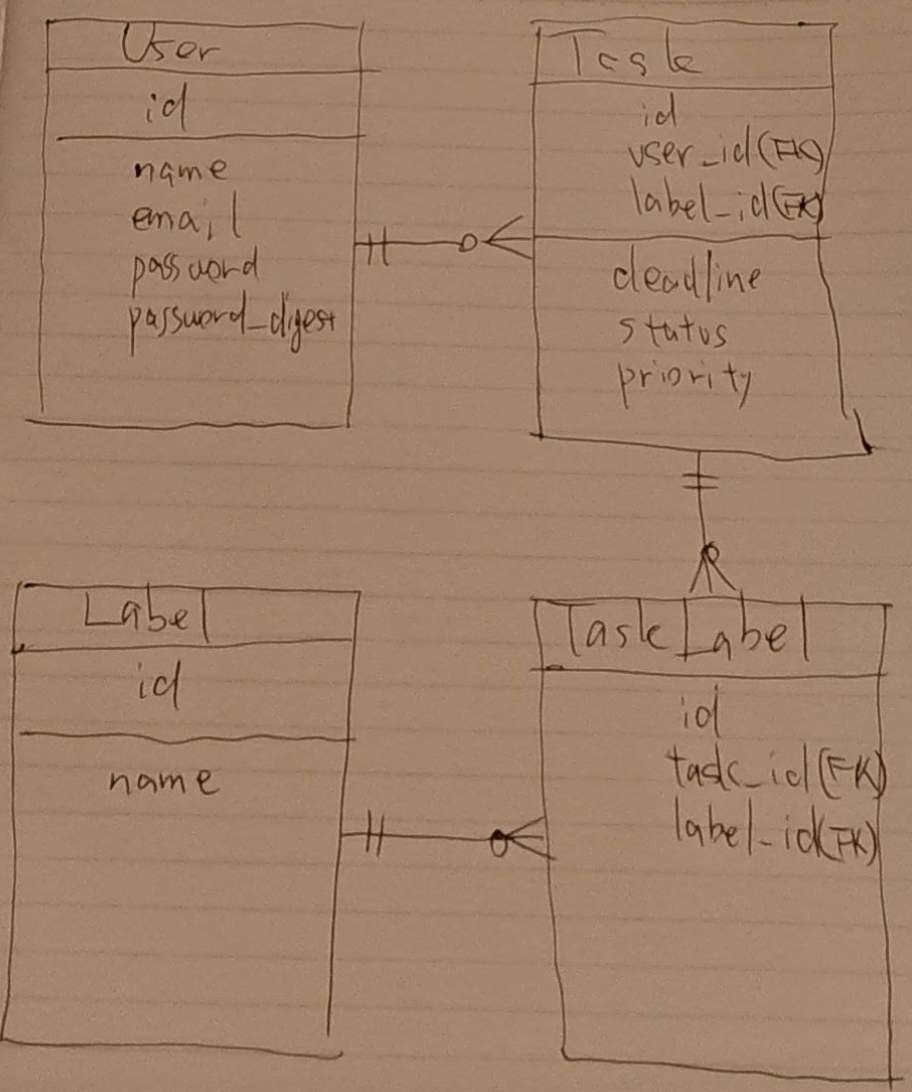 User
id
name
email
password
password_digest
Task
id
user_id(FK)
label_id(FK)
deadline
status
priority
Label
id
name
TaskLabel
id
task_id(FK)
label_id(FK)